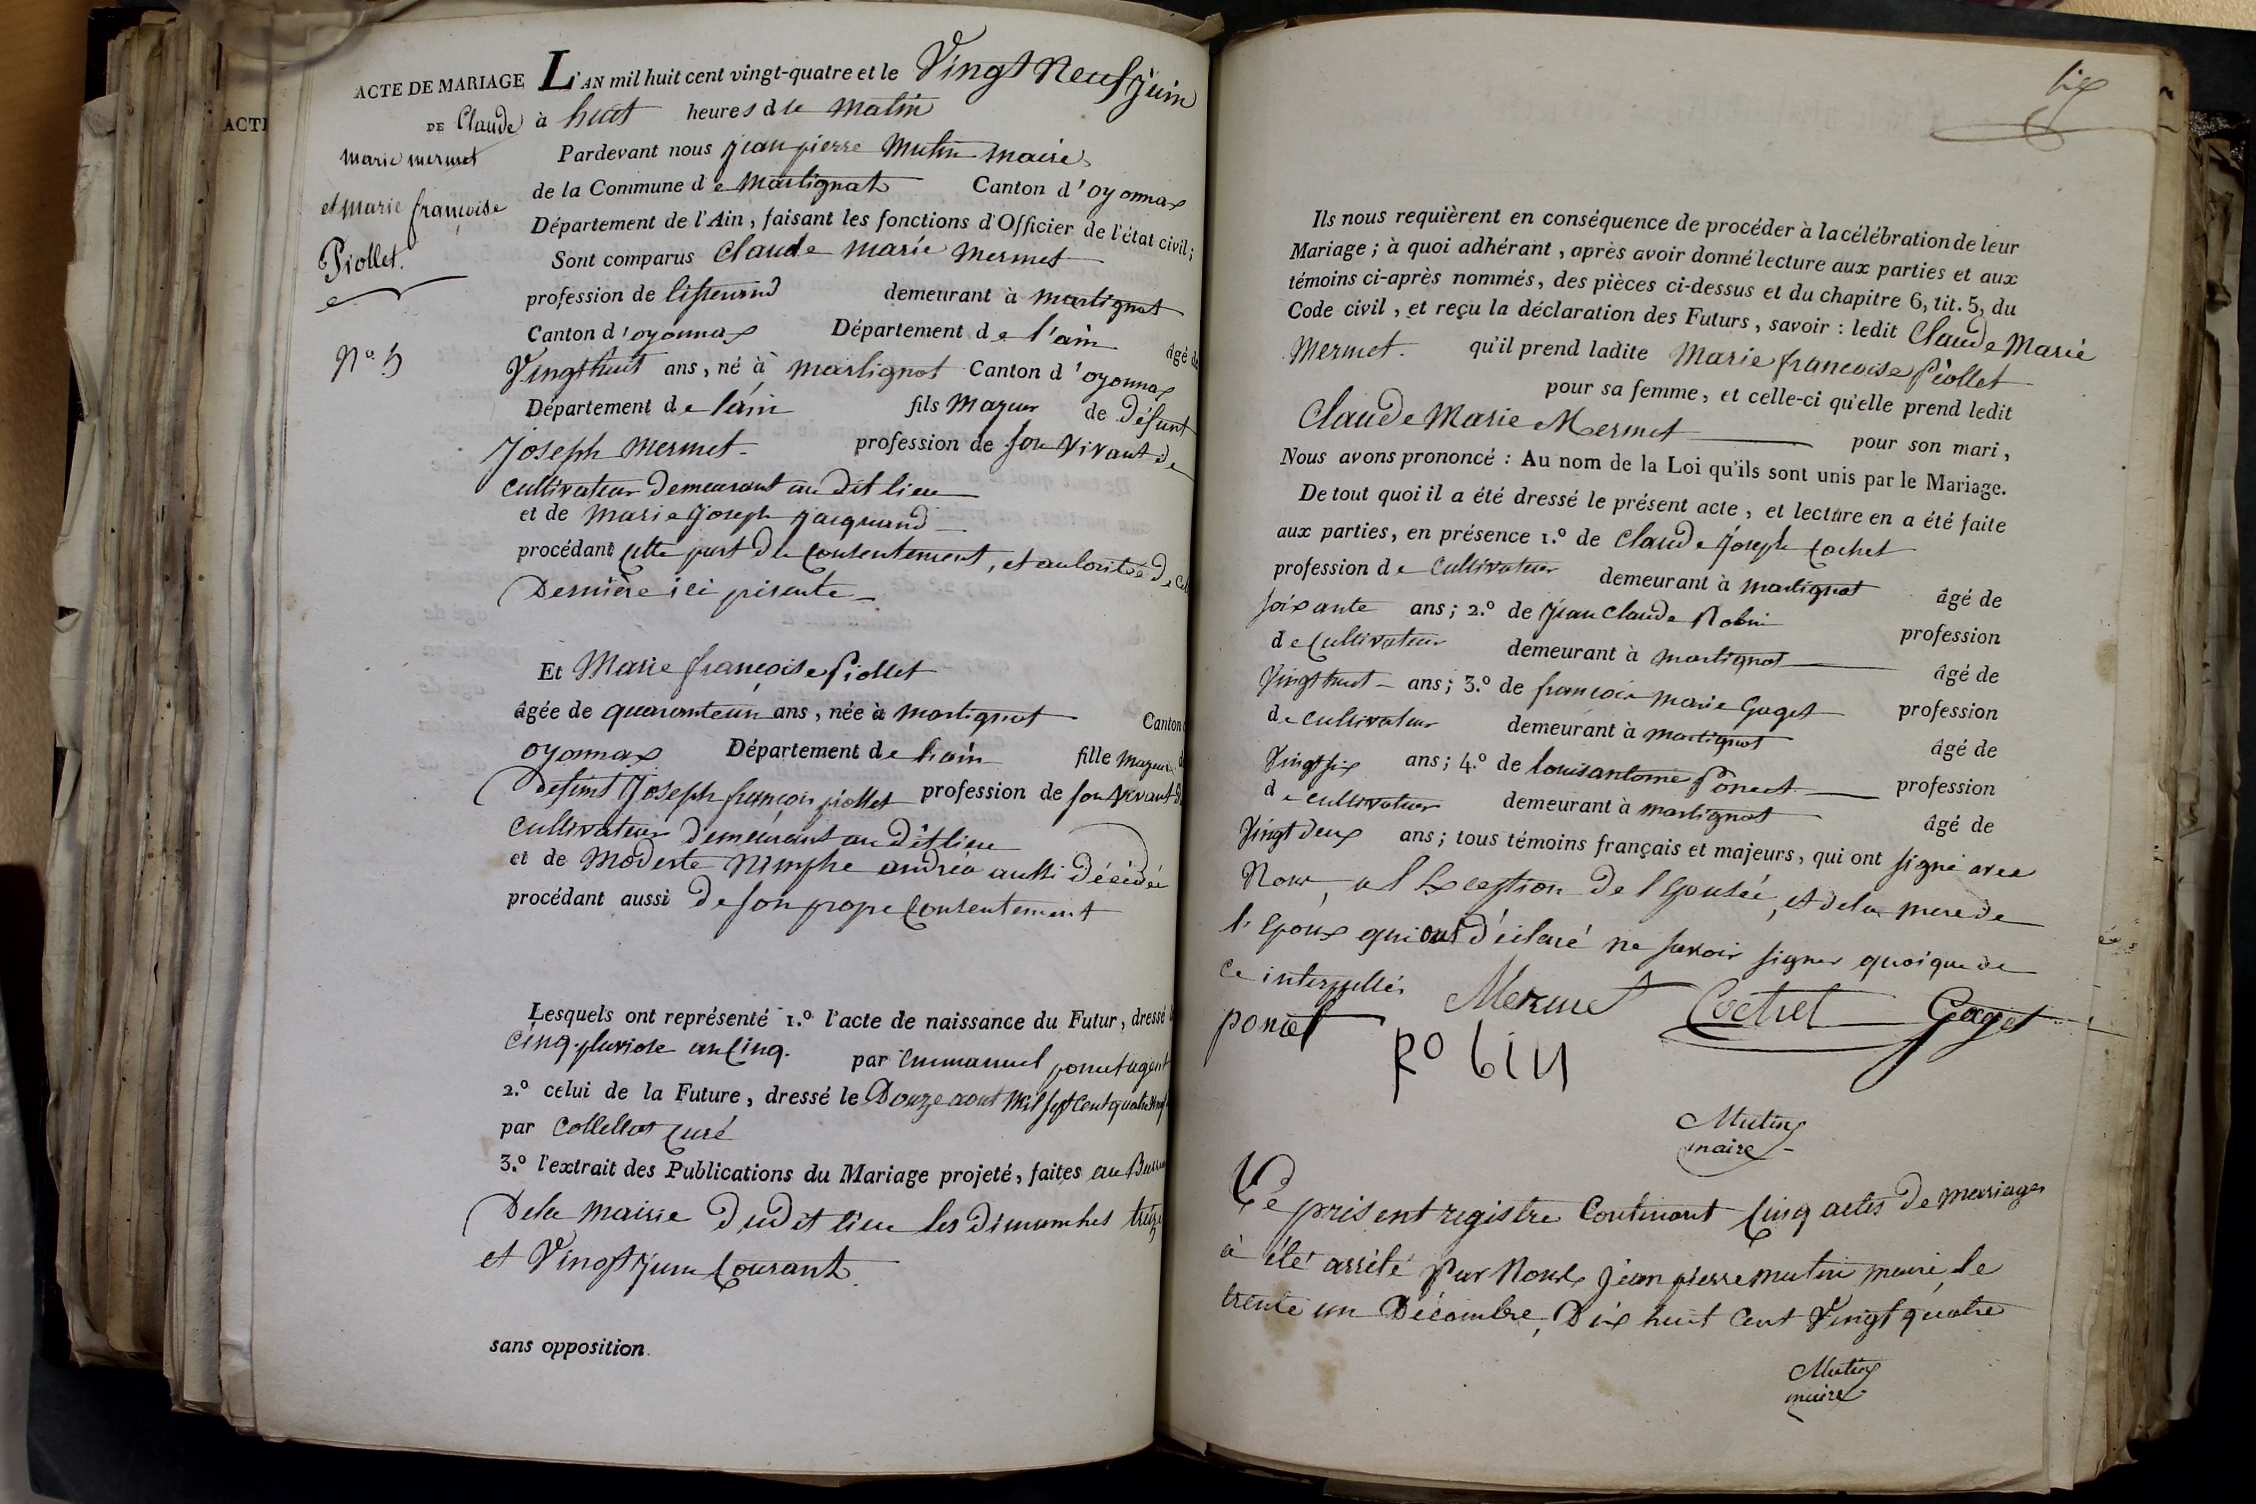 ACTE DE MARIAGE
DE Claude
marie mermet
et marie françoise
Piollet.
N.° 5
ACTE
L'AN mil huit cent vingt-quatre et le Vingt Neuf juin
à huit heures du matin
Pardevant nous jean pierre Mutin maire
de la Commune de Martignat Canton d'oyonnax
Département de l'Ain, faisant les fonctions d'Officier de l'état civil;
Sont comparus Claude marie mermet
profession de tisserand demeurant à martignat
Canton d'oyonnax Département de l'ain âgé de
Vingthuit ans, né à martignat Canton d'oyonnax
Département de l'ain fils mageur de défunt
Joseph mermet profession de son vivant de
cultivateur demeurant au dit lieu
et de marie joseph jacquand
procédant cette part du consentement, et autoritée de
Dernière ici présente
Et Marie françoise Piollet
âgée de quaranteun ans, née à martignat Canton
oyonnax Département de l'ain fille mageure
Défunt Joseph françois piollet profession de son vivant
cultivateur demeurant au dit lieu
et de Modeste Nimphe andréa aussi décédée
procédant aussi de son propre consentement
Lesquels ont représenté 1.° l'acte de naissance du Futur, dressé
cinq pluviose an cinq. par Emmanuel ponet agent
2.° celui de la Future, dressé le Douze aout mil sept cent quatre vingt
par Collettat curé
3.° l'extrait des Publications du Mariage projeté, faites au Bureau
De la mairie dudit lieu les dimanches treize
et Vingt juin courant
sans opposition.
six
Ils nous requièrent en conséquence de procéder à la célébration de leur
Mariage; à quoi adhérant, après avoir donné lecture aux parties et aux
témoins ci-après nommés, des pièces ci-dessus et du chapitre 6, tit. 5, du
Code civil, et reçu la déclaration des Futurs, savoir : ledit Claude Marie
Mermet. qu'il prend ladite Marie françoise Piollet
pour sa femme, et celle-ci qu'elle prend ledit
Claude Marie Mermet pour son mari,
Nous avons prononcé : Au nom de la Loi qu'ils sont unis par le Mariage.
De tout quoi il a été dressé le présent acte, et lecture en a été faite
aux parties, en présence 1.° de Claude Joseph Cochet
profession de cultivateur demeurant à martignat âgé de
soixante ans; 2.° de jean Claude Robin profession
de cultivateur demeurant à martignat âgé de
Vingthuit ans; 3.° de françois marie Gaget profession
de cultivateur demeurant à martignat âgé de
Vingtsix ans; 4.° de louis antoine Ponet profession
de cultivateur demeurant à martignat âgé de
Vingt deux ans; tous témoins français et majeurs, qui ont signé avec
Nous, a l'Exception de l'Epousée, et de la mere de
l'Epoux qui ont déclaré ne savoir signer quoique de
ce interpellés
ponet Mermet Cochet Gaget
Robin
Mutin
maire
Le présent registre contenant cinq actes de mariages
à été arrêté par Nous jean pierre mutin maire, le
trente un Décembre, Dix huit Cent Vingt quatre
Mutin
maire